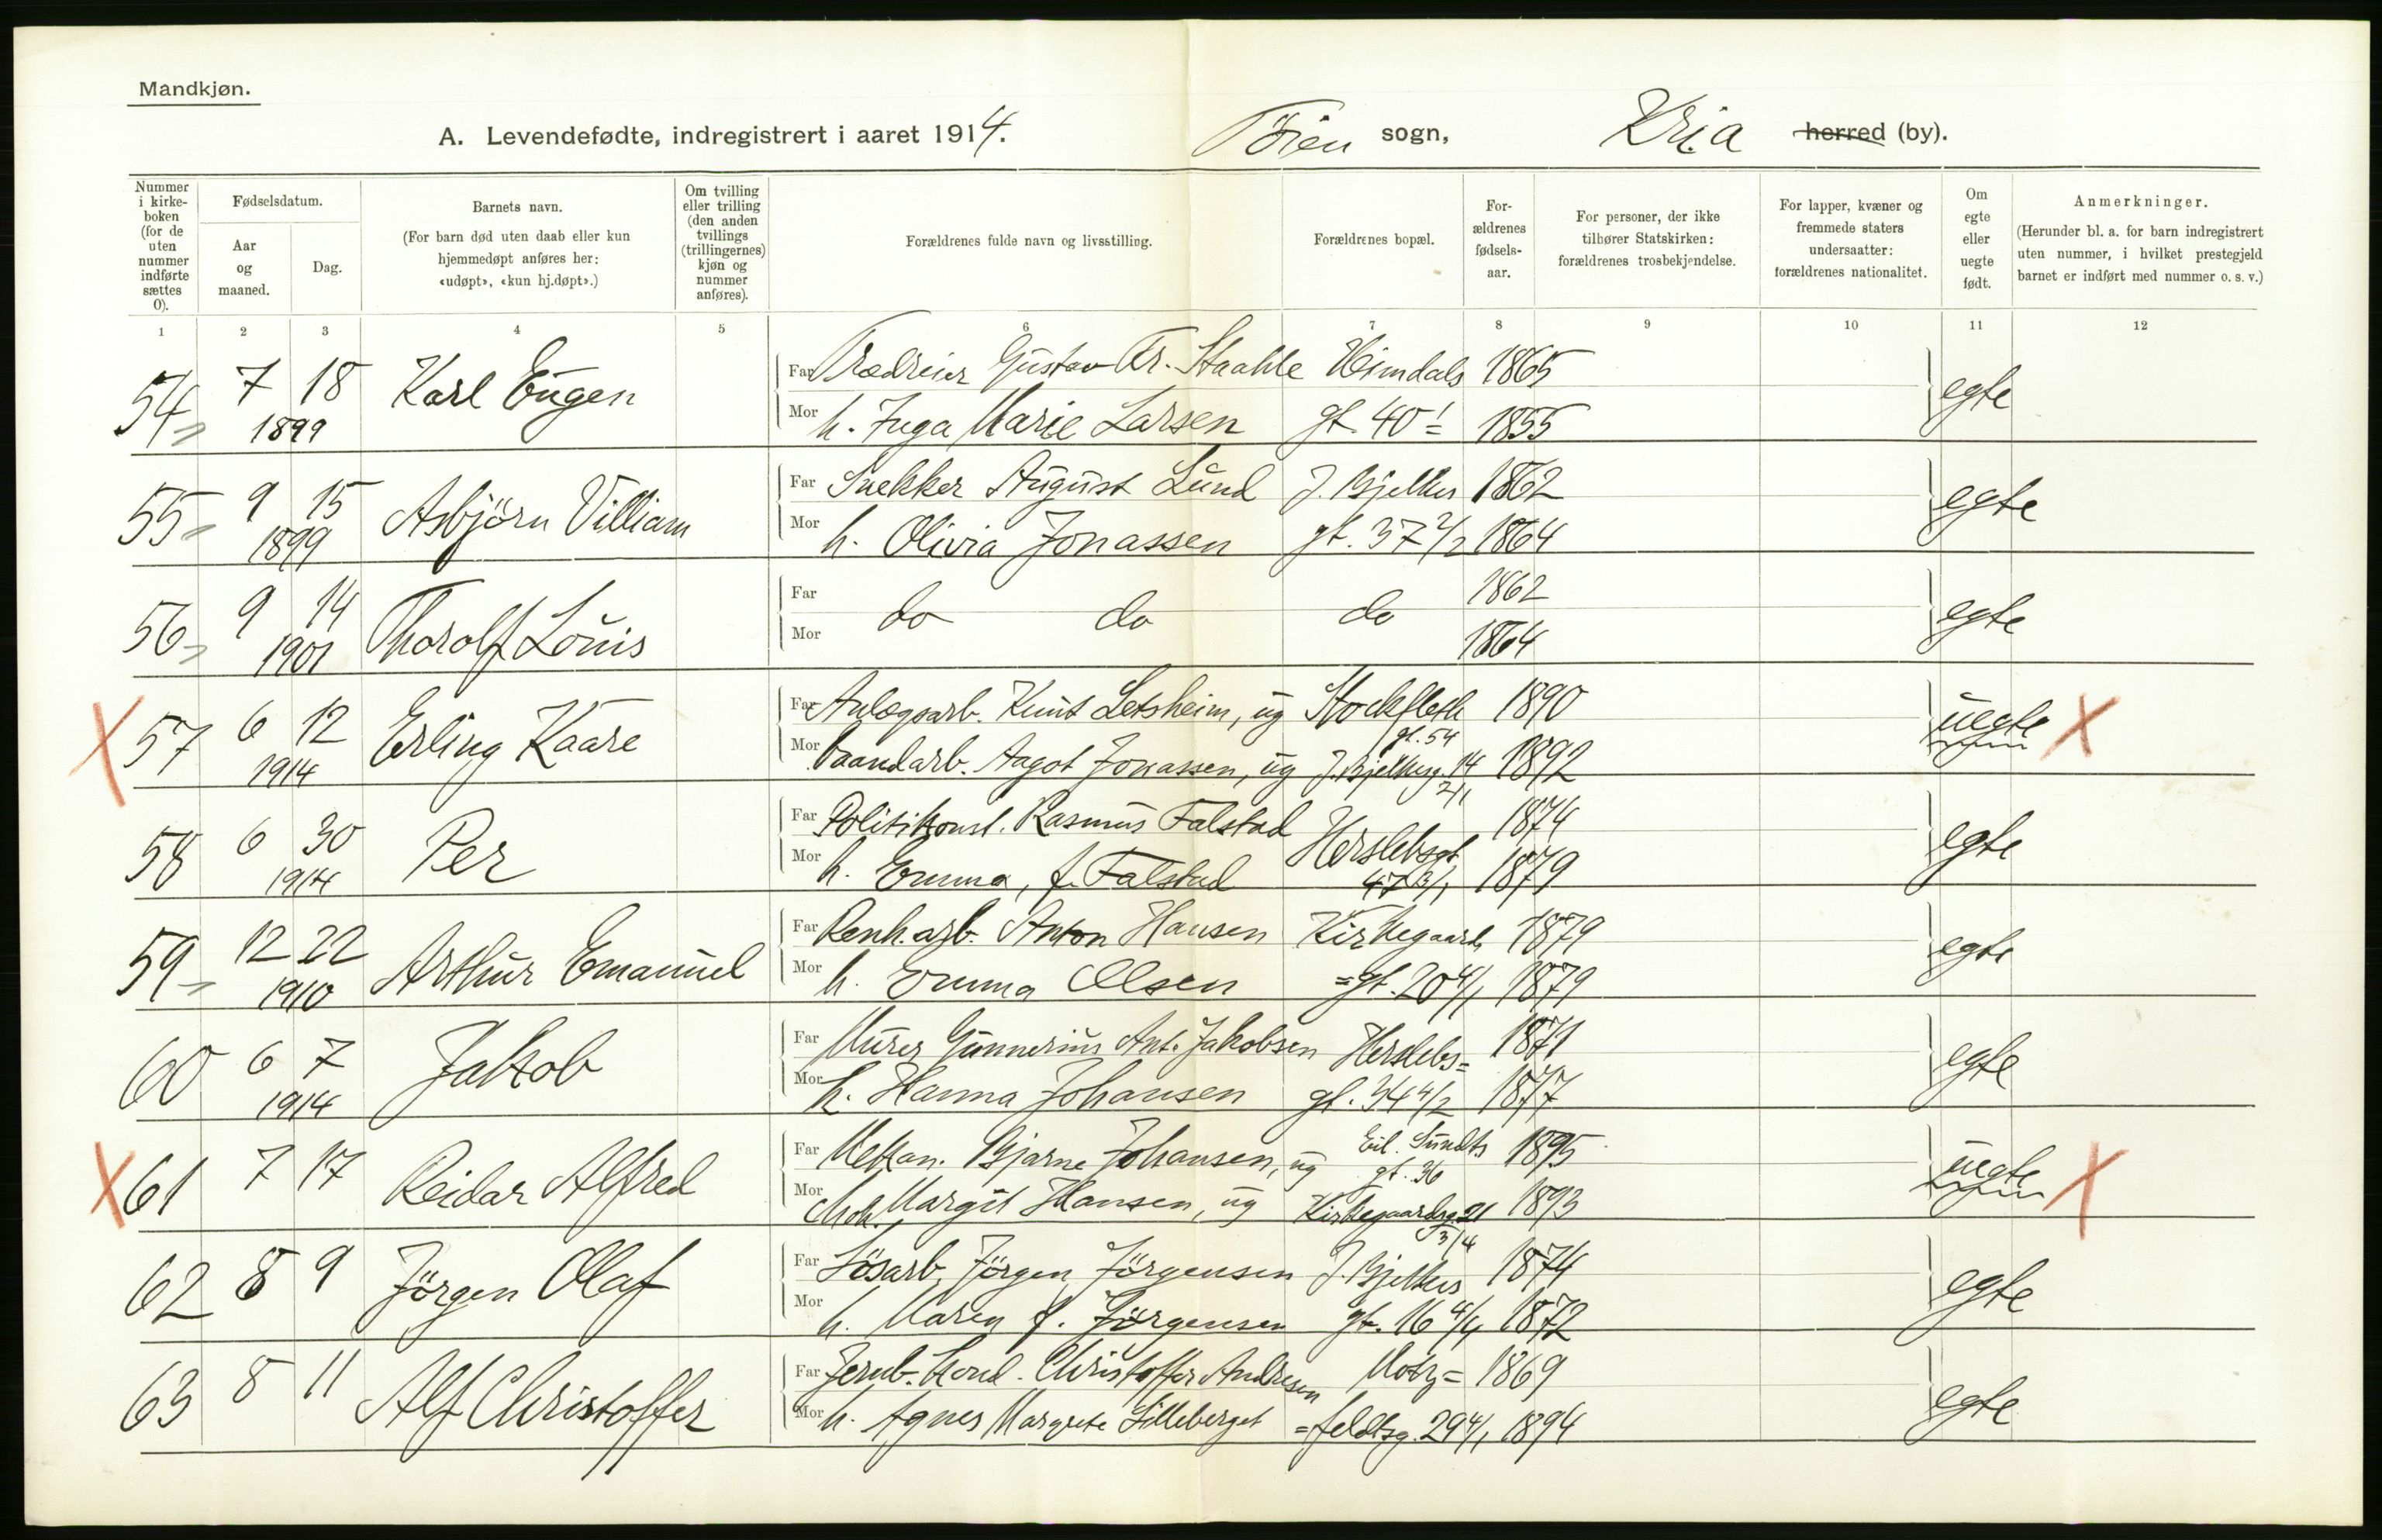 Mandkjøn.
A. Levendefødte, indregistrert i aaret 1914. Töien sogn, Kr.a herred (by).
Nummer i kirke-boken (for de uten nummer indførte sættes 0).
Fødselsdatum.
Aar og maaned.
Dag.
Barnets navn.
(For barn død uten daab eller kun hjemmedøpt anføres her: «udøpt», «kun hj.døpt».)
Om tvilling eller trilling (den anden tvillings (trillingernes) kjøn og nummer anføres).
Forældrenes fulde navn og livsstilling.
Forældrenes bopæl.
For-ældrenes fødsels-aar.
For personer, der ikke tilhører Statskirken: forældrenes trosbekjendelse.
For lapper, kvæner og fremmede staters undersaatter: forældrenes nationalitet.
Om egte eller uegte født.
Anmerkninger.
(Herunder bl. a. for barn indregistrert uten nummer, i hvilket prestegjeld barnet er indført med nummer o. s. v.)
1 2 3 4 5 6 7 8 9 10 11 12
54 7 18 Karl Eugen Far Gustav Fr. Staahle Heimdals 1865 egte
1899 Mor h. Inga Marie Larsen gt. 40 1855
55 9 15 Asbjörn Villiam Far Snekker August Lund J. Bjelkes 1862 egte
1899 Mor h. Olivia Jonassen gt. 37 2/2 1864
56 9 14 Thorolf Louis Far do do do 1862 egte
1901 Mor 1864
X 57 6 12 Erling Kaare Far Anlægsarb. Knut Letsheim, ug Stockfleth gt. 54 1890 uegte X
1914 Mor Vaandarb. Aagot Jonassen, ug J. Bjelkesg. 14 2/1 1892
58 6 30 Per Far Politikonst. Rasmus Falstad Herslebsgt. 1874 egte
1914 Mor h. Emma, f. Falstad 47 3/1 1879
59 12 22 Arthur Emanuel Far Renh.arb. Anton Hansen Kirkegaards 1879 egte
1910 Mor h. Emma Olsen =gt. 20 4/1 1879
60 6 7 Jakob Far Murer Gunnerius Ant. Jakobsen Herslebs= 1871 egte
1914 Mor h. Hanna Johansen gt. 34 4/2 1877
X 61 7 17 Reidar Alfred Far Mekan. Bjarne Johansen, ug Eil. Sundts gt. 36 1895 uegte X
Mor Margit Hansen, ug Kirkegaardsg. 21 3/4 1893
62 8 9 Jörgen Olaf Far Lösarb. Jörgen Jörgensen J. Bjelkes 1874 egte
Mor h. Maren f. Jörgensen gt. 16 4/4 1872
63 8 11 Alf Christoffer Far Jernb. kond. Christoffer Andresen Motz= 1869 egte
Mor h. Agnes Margrete Lilleberget =feldtsg. 29 4/1 1894